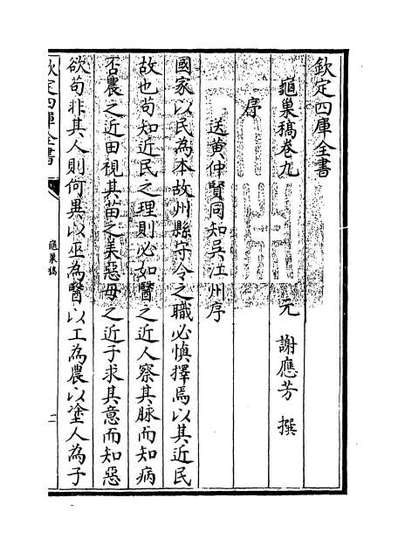 欽定四庫全書
龜巢稿卷九
元 謝應芳 撰
序
送黄仲賢同知吳江州序
國家以民為本故州縣守令之職必慎擇焉以其近民
故也苟知近民之理則必如醫之近人察其脉而知病
否農之近田視其苗之美惡母之近子求其意而知惡
欲苟非其人則何異以巫為醫以工為農以塗人為子
欽定四庫全書
龜巢稿